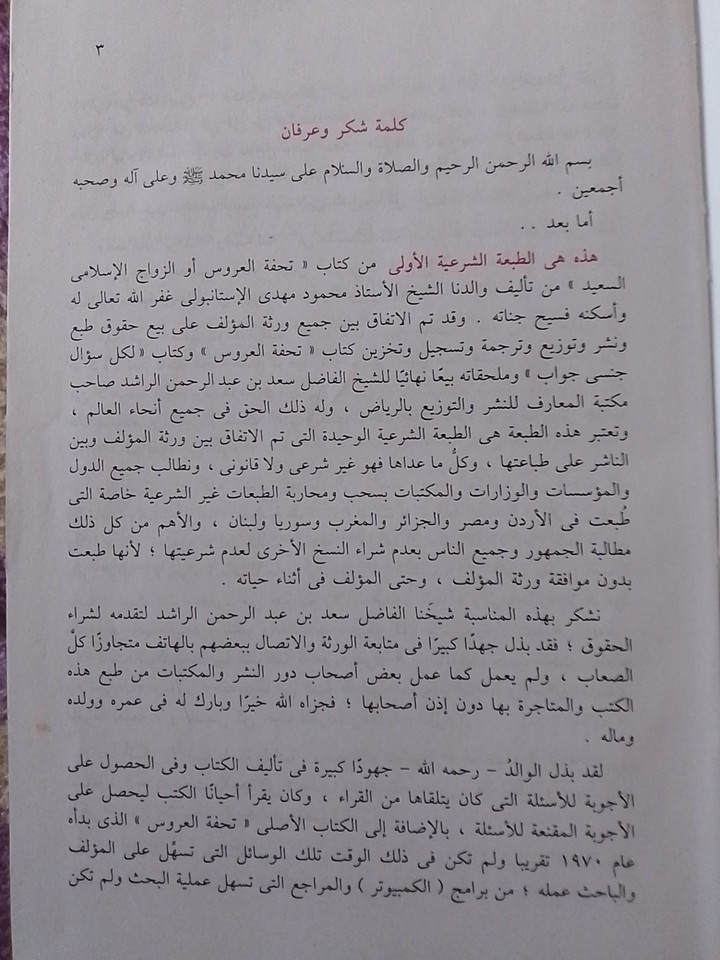 ٣
كلمة شكر وعرفان
بسم الله الرحمن الرحيم والصلاة والسلام على سيدنا محمد ﷺ وعلى آله وصحبه
أجمعين .
أما بعد . .
هذه هى الطبعة الشرعية الأولى من كتاب « تحفة العروس أو الزواج الإسلامى
السعيد » من تأليف والدنا الشيخ الأستاذ محمود مهدى الإستانبولى غفر الله تعالى له
وأسكنه فسيح جناته . وقد تم الاتفاق بين جميع ورثة المؤلف على بيع حقوق طبع
ونشر وتوزيع وترجمة وتسجيل وتخزين كتاب « تحفة العروس » وكتاب « لكل سؤال
جنسى جواب » وملحقاته بيعًا نهائيًا للشيخ الفاضل سعد بن عبد الرحمن الراشد صاحب
مكتبة المعارف للنشر والتوزيع بالرياض ، وله ذلك الحق فى جميع أنحاء العالم ،
وتعتبر هذه الطبعة هى الطبعة الشرعية الوحيدة التى تم الاتفاق بين ورثة المؤلف وبين
الناشر على طباعتها ، وكلُّ ما عداها فهو غير شرعى ولا قانونى ، ونطالب جميع الدول
والمؤسسات والوزارات والمكتبات بسحب ومحاربة الطبعات غير الشرعية خاصة التى
طُبعت فى الأردن ومصر والجزائر والمغرب وسوريا ولبنان ، والأهم من كل ذلك
مطالبة الجمهور وجميع الناس بعدم شراء النسخ الأخرى لعدم شرعيتها ؛ لأنها طبعت
بدون موافقة ورثة المؤلف ، وحتى المؤلف فى أثناء حياته .
نشكر بهذه المناسبة شيخَنا الفاضل سعد بن عبد الرحمن الراشد لتقدمه لشراء
الحقوق ؛ فقد بذل جهدًا كبيرًا فى متابعة الورثة والاتصال ببعضهم بالهاتف متجاوزًا كلَّ
الصعاب ، ولم يعمل كما عمل بعض أصحاب دور النشر والمكتبات من طبع هذه
الكتب والمتاجرة بها دون إذن أصحابها ؛ فجزاه الله خيرًا وبارك له فى عمره وولده
وماله .
لقد بذل الوالدُ – رحمه الله – جهودًا كبيرة فى تأليف الكتاب وفى الحصول على
الأجوبة للأسئلة التى كان يتلقاها من القراء ، وكان يقرأ أحيانًا الكتب ليحصل على
الأجوبة المقنعة للأسئلة ، بالإضافة إلى الكتاب الأصلى « تحفة العروس » الذى بدأه
عام ١٩٧٠ تقريبا ولم تكن فى ذلك الوقت تلك الوسائل التى تسهّل على المؤلف
والباحث عمله ؛ من برامج ( الكمبيوتر ) والمراجع التى تسهل عملية البحث ولم تكن